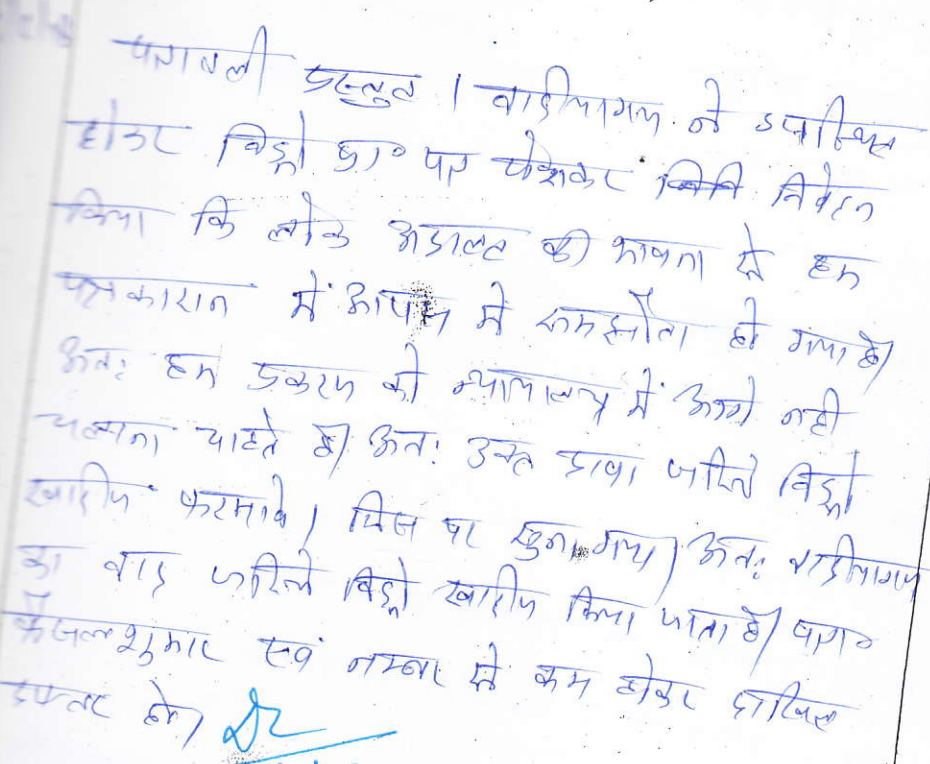 पत्रावली प्रस्तुत । वादीयागण ने उपस्थित
होकर विड्रो प्रा० पत्र पेशकर निवेदन
किया कि लोक अदालत की भावना से हम
पक्षकारान में आपस में समझौता हो गया है।
अतः हम प्रकरण को न्यायालय में आगे नही
चलाना चाहते है। अतः उक्त दावा जरिये विड्रो
खारीज फरमावे। जिस पर सुना गया। अतः वादीयागण
का वाद जरिये विड्रो खारीज किया जाता है। पत्रा०
फैसलशुमार एवं नम्बर से कम होकर दाखिल
दफ्तर हो।